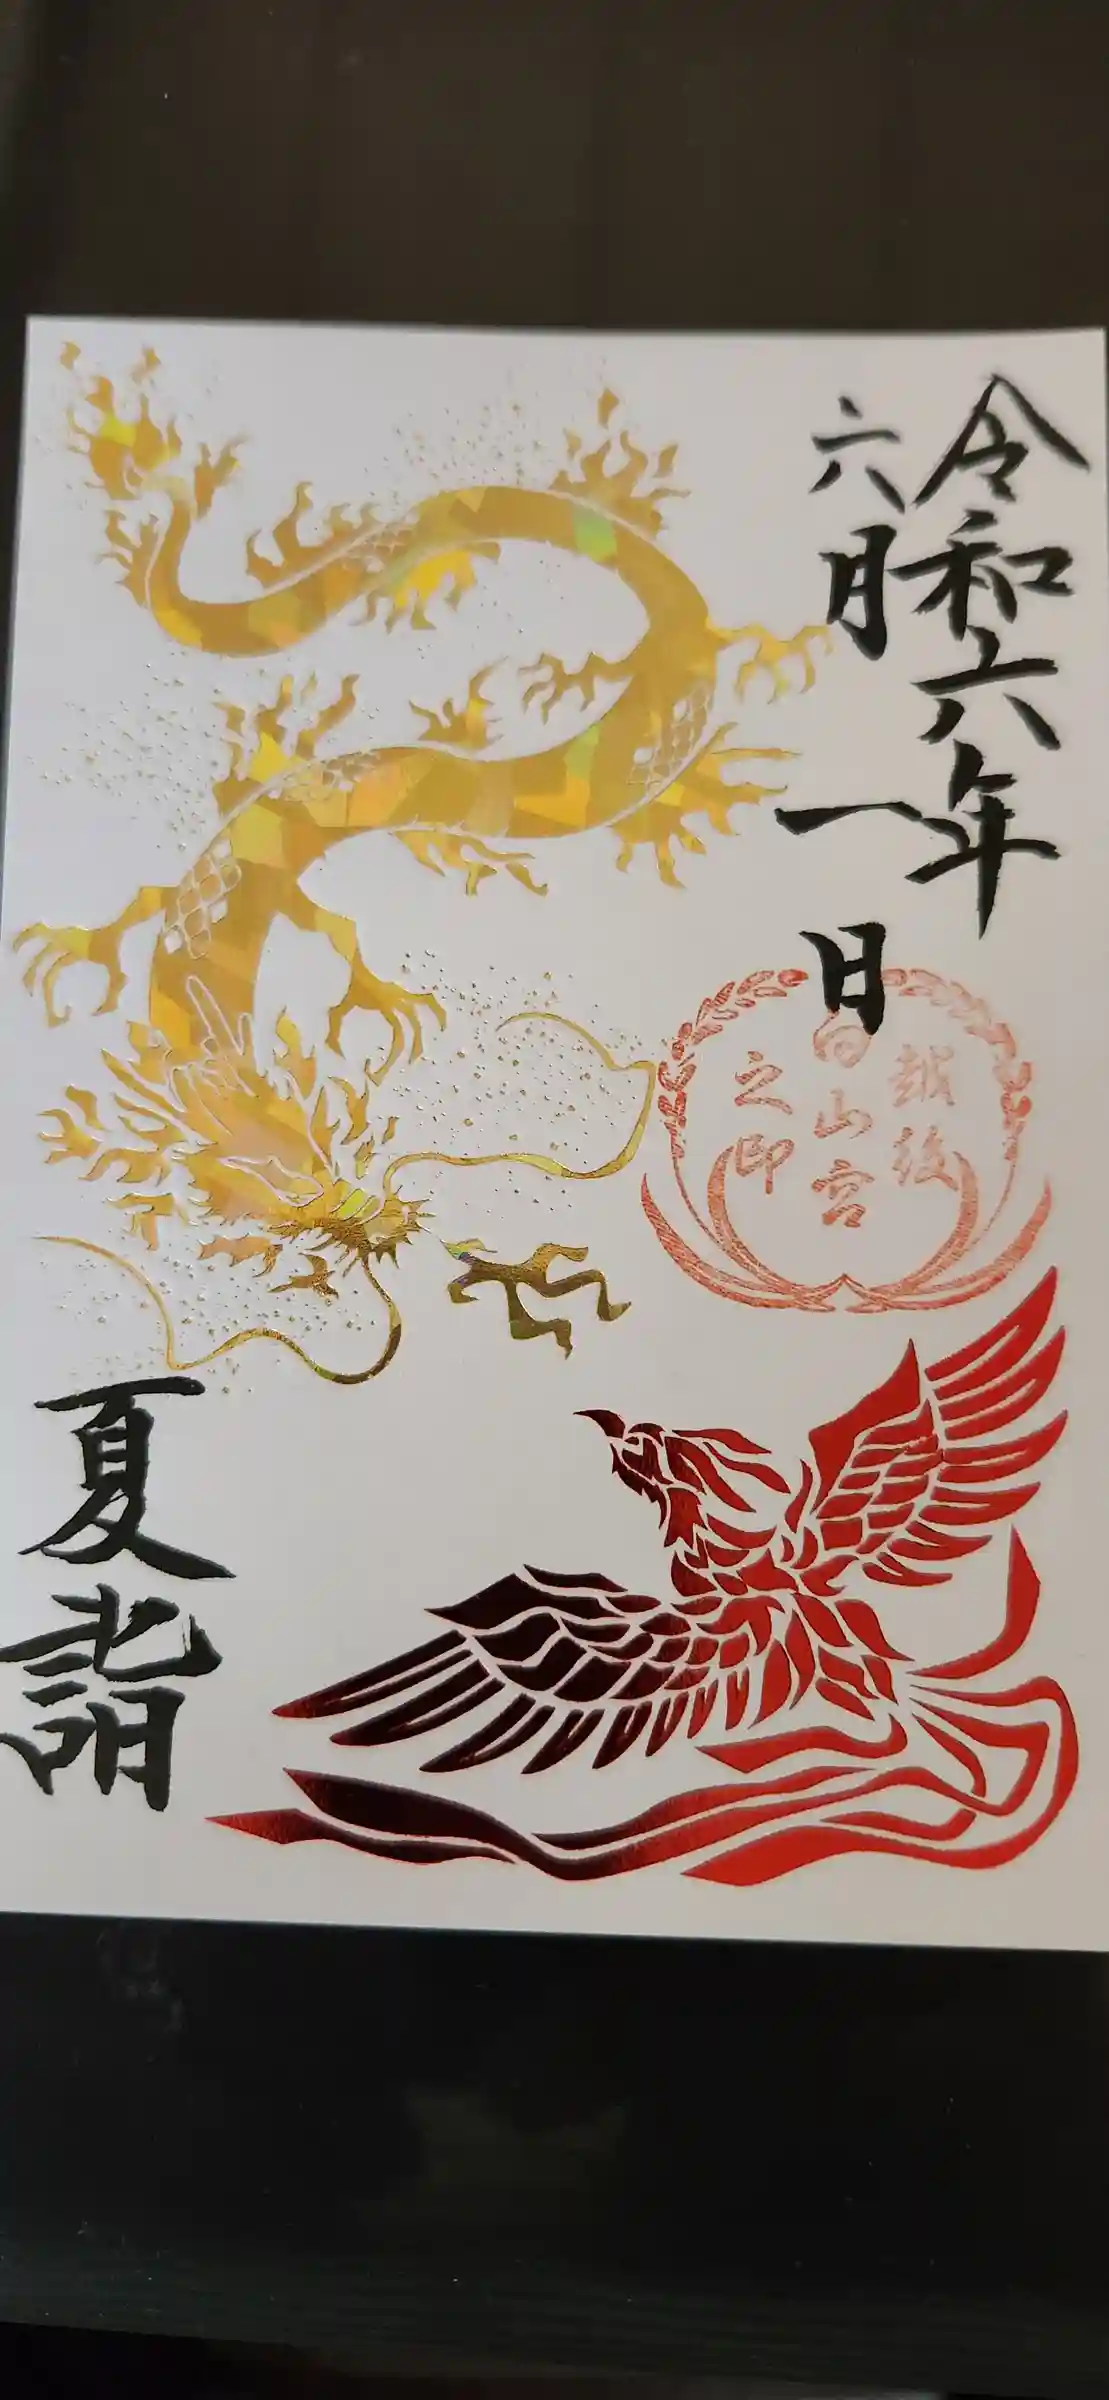 令和六年
六月一日
越後
白山宮
之印
夏詣